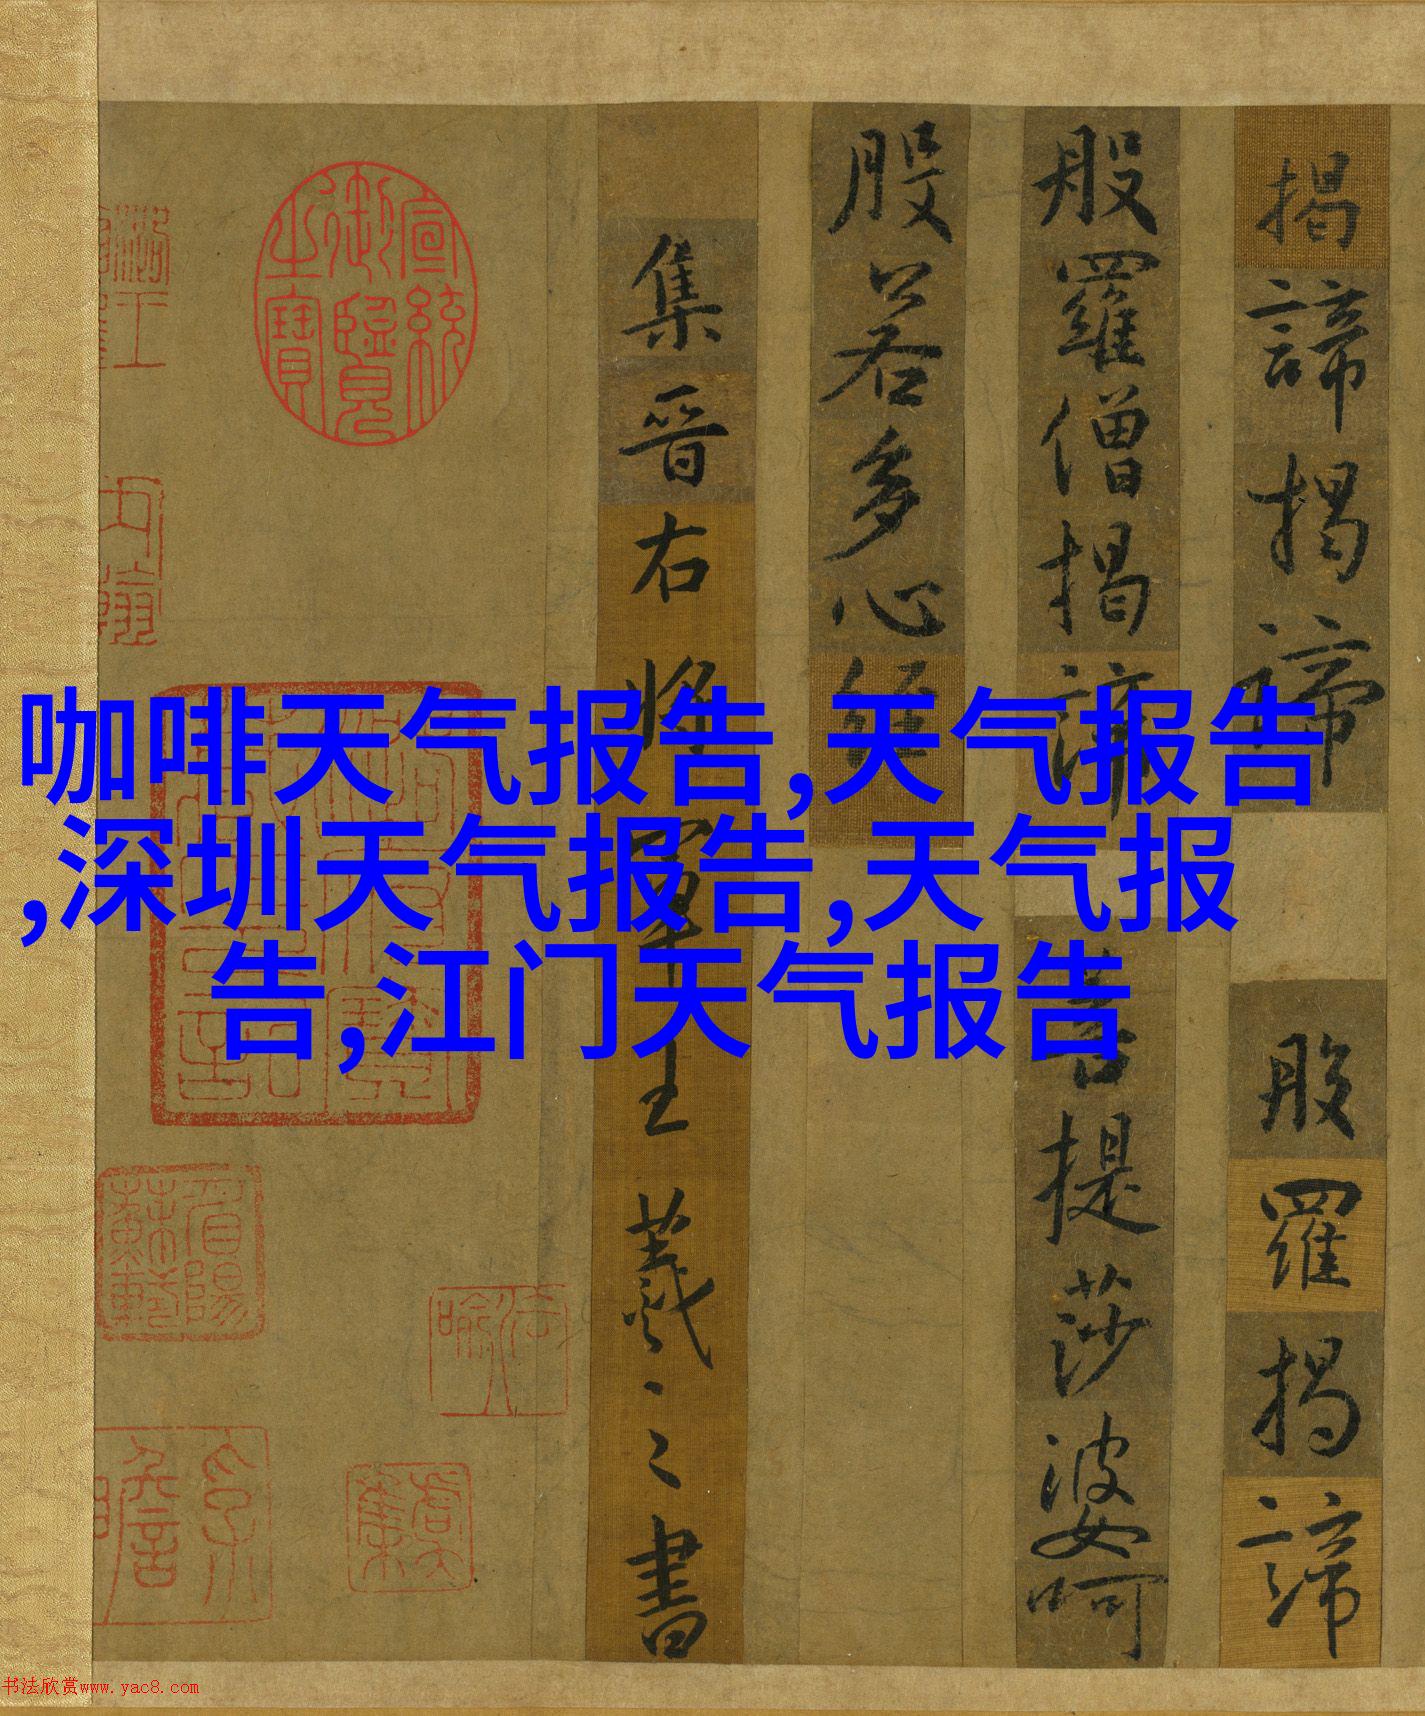 咖啡天气报告,天气报告
,深圳天气报告,天气报
告,江门天气报告
揭諦揭諦
般羅揭諦
般羅僧揭諦
菩提莎婆呵
般若多心經
集晉右將軍王羲之書
宣統
御覽
之寶
眉陽
蘇軾
书法欣赏www.yac8.com